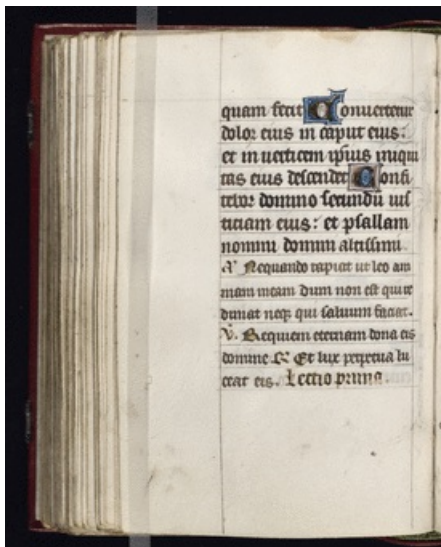 quam fecit Convertetur
dolor eius in caput eius:
et in verticem ipsius iniqui
tas eius descendet Confi
tebor domino secundū ius
ticiam eius: et psallam
nomini domini altissimi
A Nequando rapiat ut leo ani
mam meam dum non est qui re
dimat neqȝ qui saluum faciat.
V. Requiem eternam dona eis
domine R Et lux perpetua lu
ceat eis. Lectio prima.